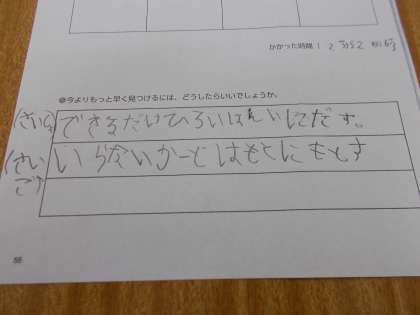 かかった時間 1 2分52秒
◎今よりもっと早く見つけるには、どうしたらいいでしょうか。
できるだけひろいはんいにだす。
(さいご) いらないカードはもとにもどす